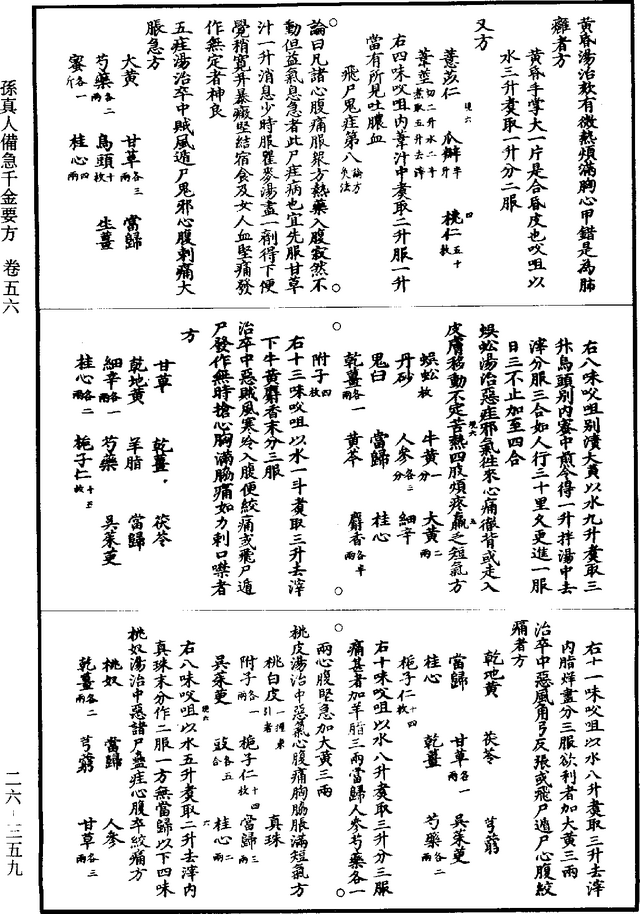 黃昏湯治欬有微熱煩滿胸心甲錯是為肺
癰者方
黃昏手掌大一片是合昏皮也㕮咀以
水三升煑取一升分二服
又方
薏苡仁 瓜瓣半升 桃仁五十枚
葦莖切二升水二斗煑取五升去滓
右四味㕮咀內葦汁中煑取二升服一升
當有所見吐膿血
飛尸鬼疰第八論方灸法
論曰凡諸心腹痛服眾方熱藥入腹寂然不
動但益氣息急者此尸疰病也宜先服甘草
汁一升消息少時服瞿麥湯盡一劑得下便
覺稍寬并暴癥堅結宿食及女人血堅痛發
作無定者神良
五疰湯治卒中賊風遁尸鬼邪心腹刺痛大
脹急方
大黃 甘草各三兩 當歸
芍藥各二兩 烏頭十枚 生薑
蜜各一斤 桂心四兩
右八味㕮咀別漬大黃以水九升煑取三
升烏頭別內蜜中煎令得一升拌湯中去
滓分服三合如人行三十里久更進一服
日三不止加至四合
蜈蚣湯治惡疰邪氣往來心痛徹背或走入
皮膚移動不定苦熱四肢煩疼羸乏短氣方
蜈蚣枚 牛黃一分 大黃二兩
丹砂 人參各三分 細辛
鬼臼 當歸 桂心
乾薑各一兩 黃芩 麝香各半兩
附子四枚
右十三味㕮咀以水一斗煑取三升去滓
下牛黃麝香末分三服
治卒中惡賊風寒冷入腹便絞痛或飛尸遁
尸發作無時搶心胸滿脇痛如刀刺口噤者
方
甘草 乾薑 茯苓
乾地黃 羊脂 當歸
細辛各一兩 芍藥 吳茱萸
桂心各二兩 梔子仁十五枚
右十一味㕮咀以水八升煑取三升去滓
內脂烊盡分三服欲利者加大黃三兩
治卒中惡風角弓反張或飛尸遁尸心腹絞
痛者方
乾地黃 茯苓 芎藭
當歸 甘草各一兩 吳茱萸
桂心 乾薑 芍藥各二兩
梔子仁十四枚
右十味㕮咀以水八升煑取三升分三服
痛甚者加羊脂三兩當歸人參芍藥各一
兩心腹堅急加大黃三兩
桃皮湯治中惡氣心腹痛胸脇脹滿短氣方
桃白皮一握東引者 真珠
附子各一兩 梔子仁十四枚 當歸三兩
吳茱萸 豉各五合 桂心二兩
右八味㕮咀以水五升煑取二升去滓內
真珠末分作二服一方無當歸以下四味
桃奴湯治中惡諸尸蠱疰心腹卒絞痛方
桃奴 當歸 人參
乾薑各二兩 芎藭 甘草各三兩
孫真人備急千金要方 卷五六
二六－二五九